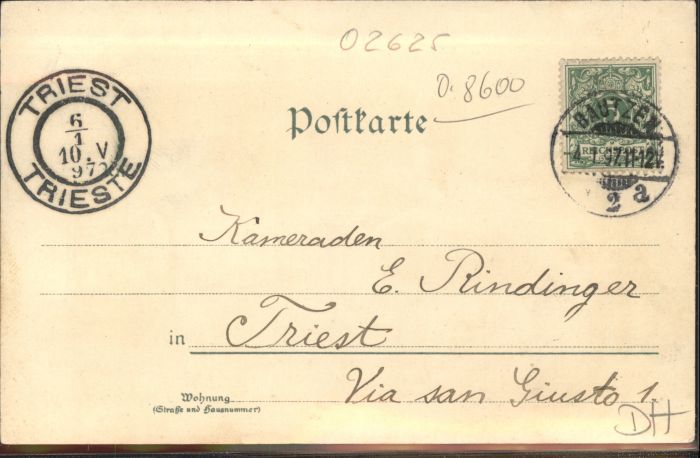 02625
D. 8600
TRIEST
6/1
10.V
97
TRIESTE
Postkarte
BAUTZEN
4.1.97.11-12V.
2 a
Kameraden
E. Rindinger
in Triest
Wohnung
(Straße und Hausnummer)
Via san Giusto 1.
DH